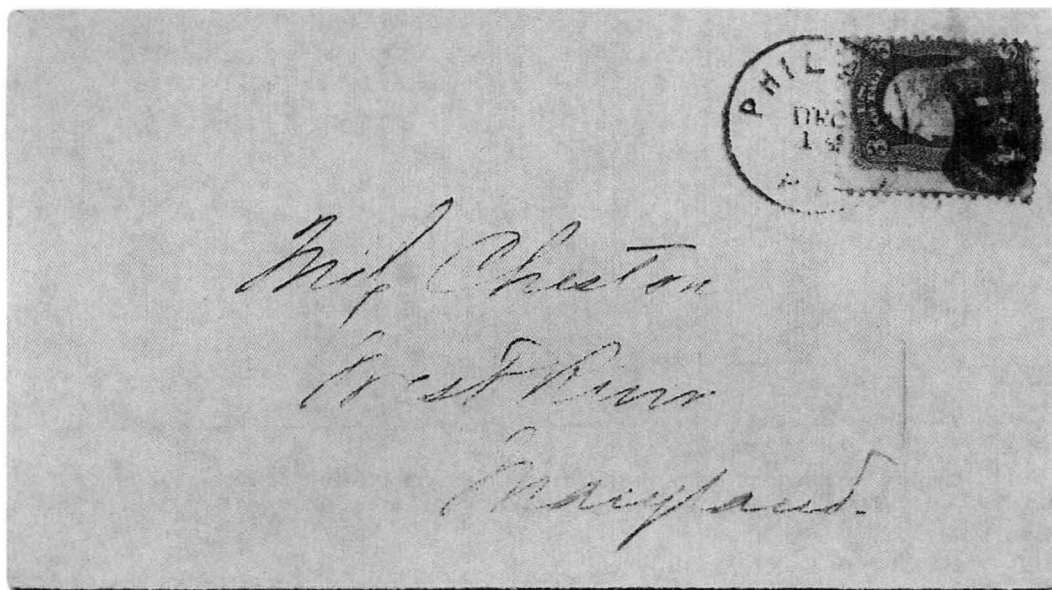 PHIL
DEC
Miss Cheston
West River
Maryland.